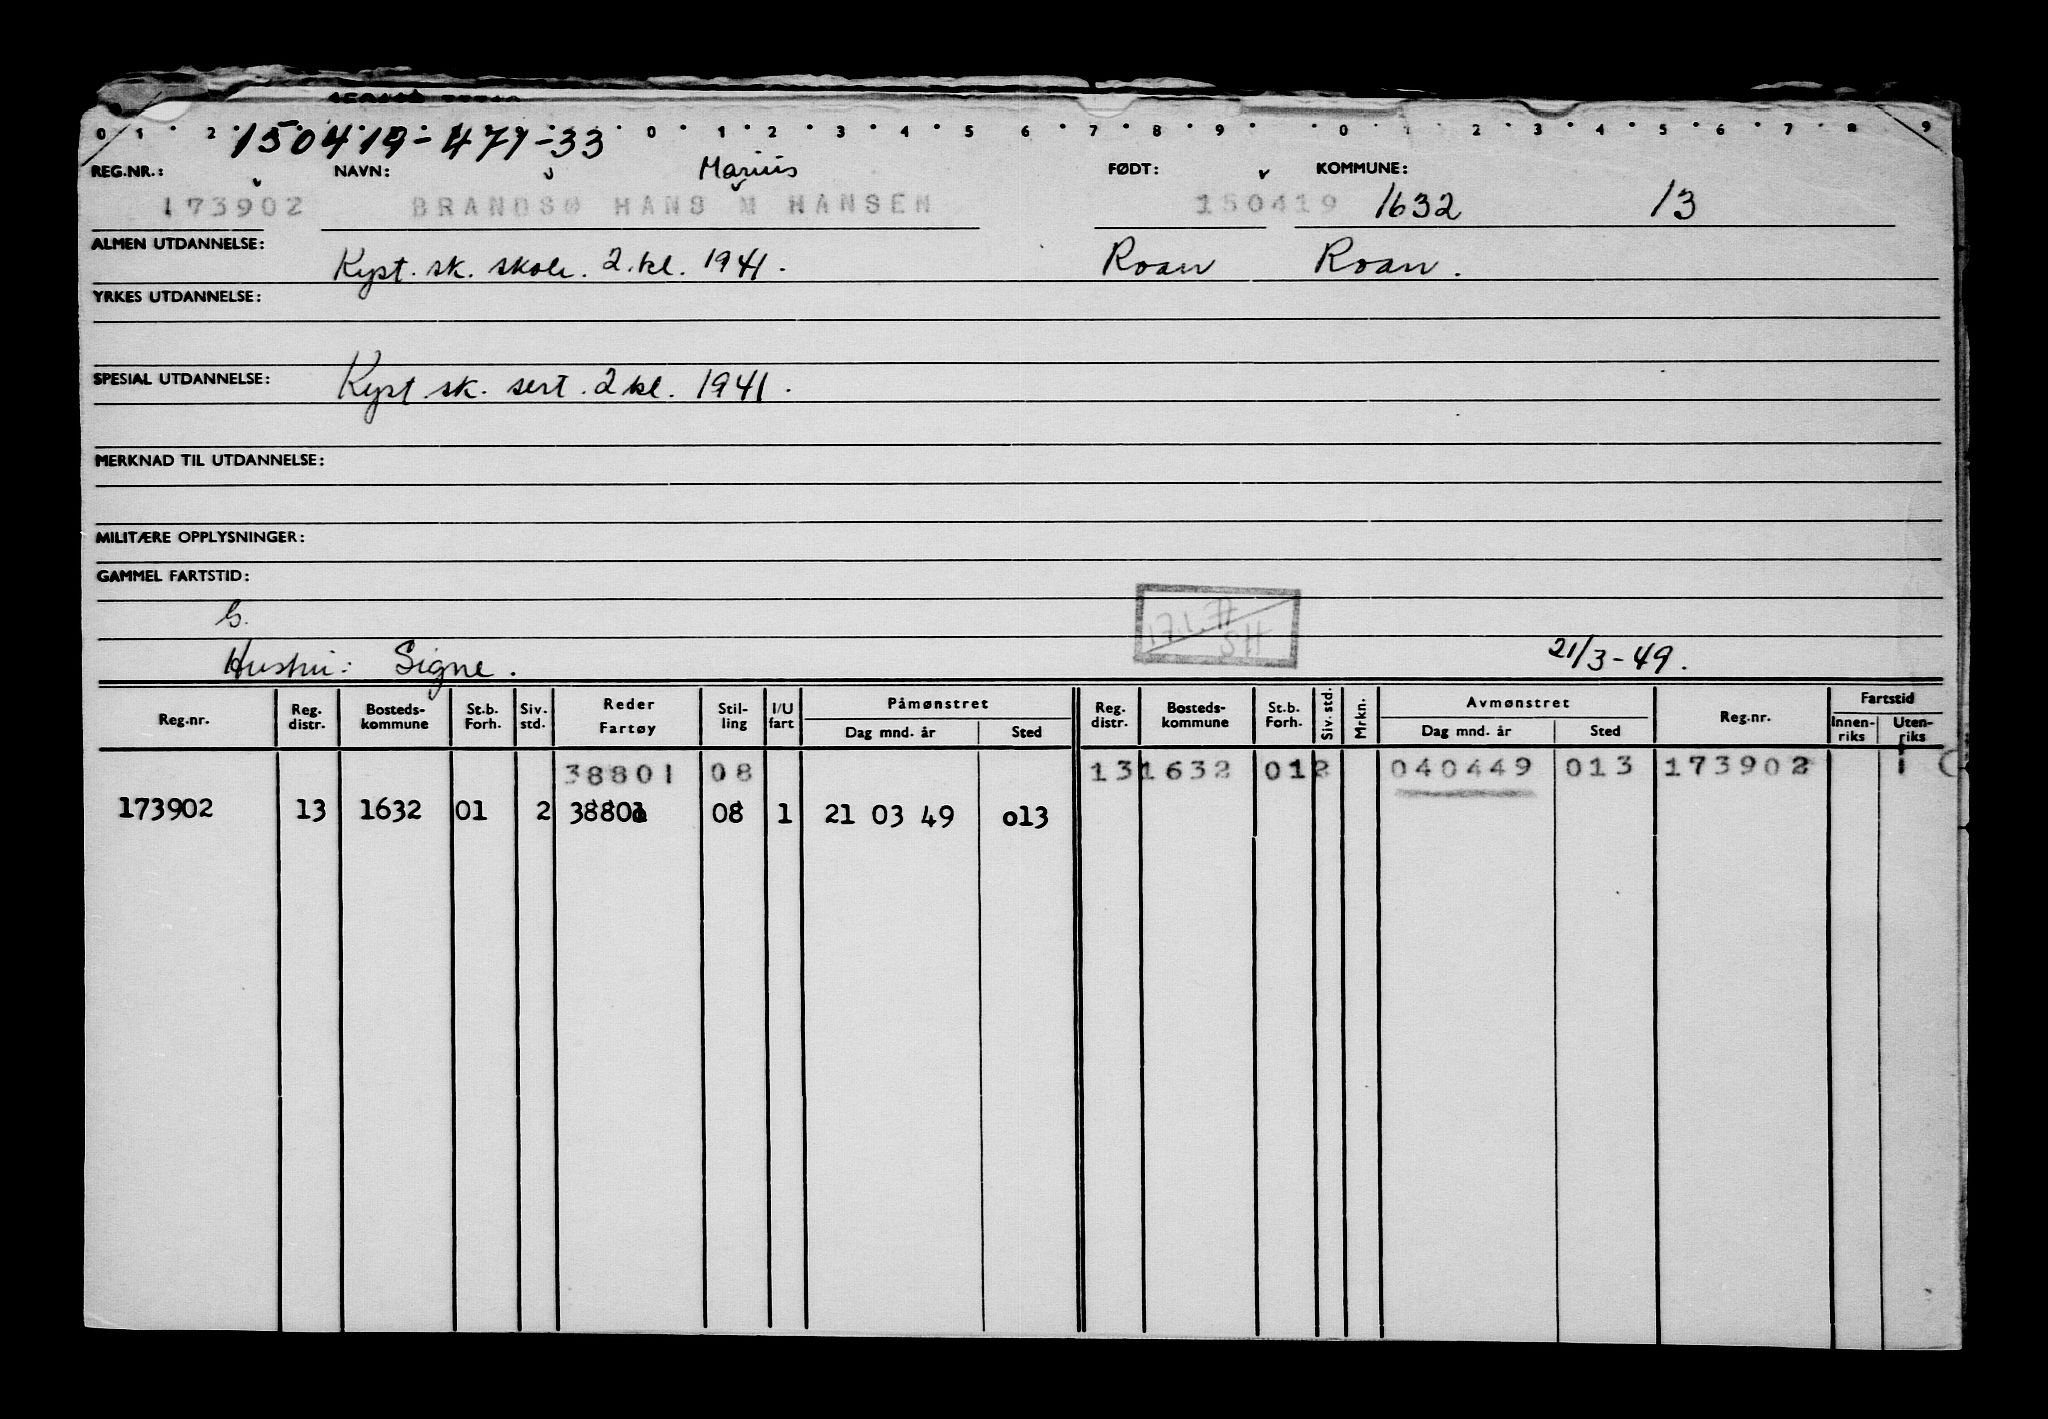 0 1 2 0 1 2 3 4 5 6 7 8 9 0 1 2 3 4 5 6 7 8 9
150419-471-33
REG.NR.: NAVN: Marius FØDT: KOMMUNE:
173902 BRANDSØ HANS M HANSEN 150419 1632 13
ALMEN UTDANNELSE: Kyst. sk. skole. 2. kl. 1941. Roan Roan.
YRKES UTDANNELSE:
SPESIAL UTDANNELSE: Kyst. sk. sert. 2 kl. 1941.
MERKNAD TIL UTDANNELSE:
MILITÆRE OPPLYSNINGER:
GAMMEL FARTSTID:
G.
17.1.77
SH
Hustru: Signe. 21/3-49.
Reg.nr. Reg. distr. Bosteds-kommune St.b. Forh. Siv. std. Reder Fartøy Stil-ling I/U fart Påmønstret Dag mnd. år Sted Reg. distr. Bosteds-kommune St.b. Forh. Siv. std. Mrkn. Avmønstret Dag mnd. år Sted Reg.nr. Fartstid Innen-riks Uten-riks
38801 08 13 1632 01 2 040449 013 173902 1
173902 13 1632 01 2 38801 08 1 21 03 49 o13